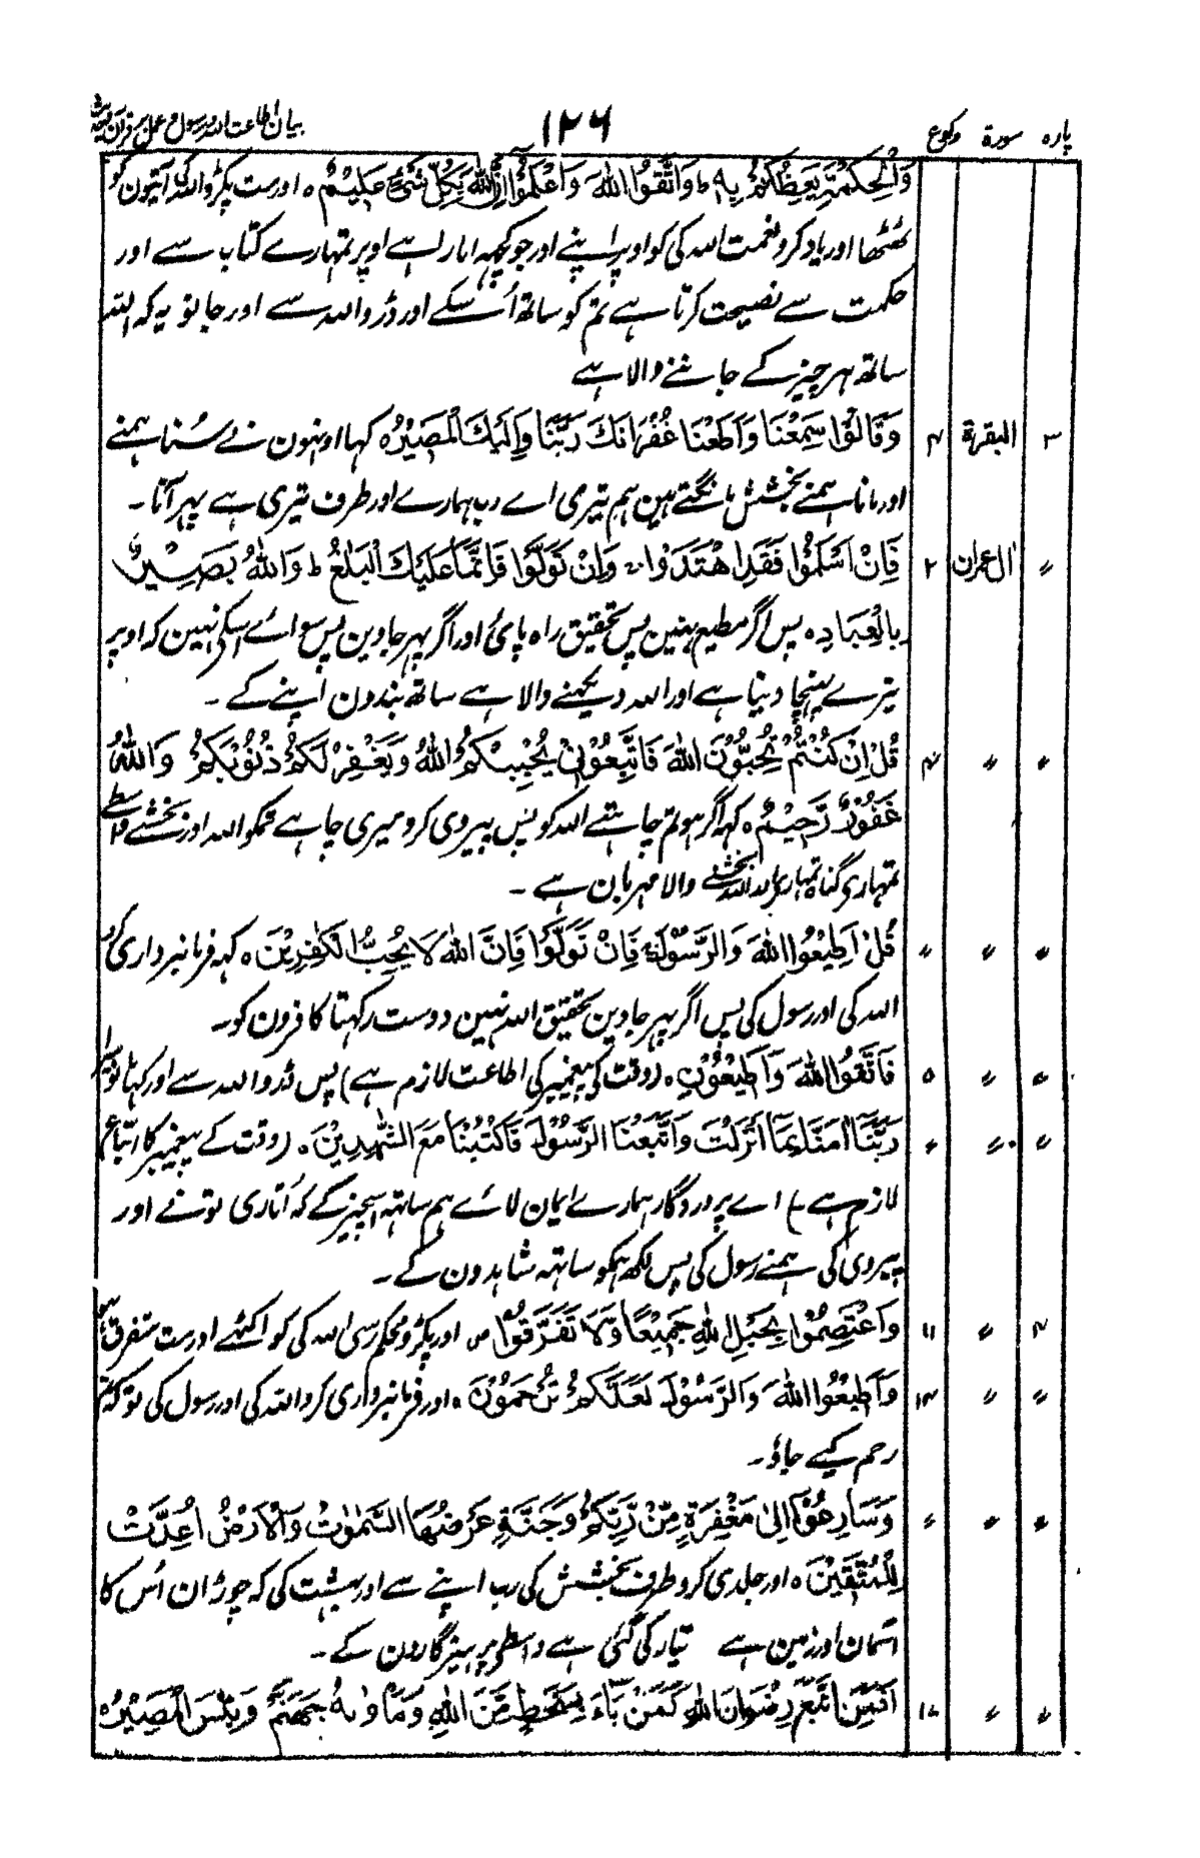 پارہ سورۃ رکوع ۱۲۶ بیان اطاعت اللہ ورسول و عمل بر قرآن
وَالْحِكْمَةِ يَعِظُكُمْ بِهٖ ط وَاتَّقُوا اللّٰهَ وَاعْلَمُوْٓا اَنَّ اللّٰهَ بِكُلِّ شَیْءٍ عَلِیْمٌ ہ اور مت پکڑو اللہ کی آیتون کو
ٹھٹھا اور یاد کرو نعمت اللہ کی کو اوپر اپنے اور جو کچہہ اتارا ہے اوپر تمہارے کتاب سے اور
حکمت سے نصیحت کرتا ہے تم کو ساتھ اُسکے اور ڈرو اللہ سے اور جانو یہ کہ اللہ
ساتھ ہر چیز کے جاننے والا ہے
۳ البقرۃ ۴۰ وَقَالُوْا سَمِعْنَا وَاَطَعْنَا غُفْرَانَكَ رَبَّنَا وَاِلَيْكَ الْمَصِيْرُ ہ کہا اونہون نے سُنا ہمنے
اور مانا ہمنے بخشش مانگتے ہین ہم تیری اے رب ہمارے اور طرف تیری ہے پہر آنا ۔
〃 اٰل عمران ۲ فَاِنْ اَسْلَمُوْا فَقَدِ اهْتَدَوْا ۔ وَاِنْ تَوَلَّوْا فَاِنَّمَا عَلَيْكَ الْبَلٰغُ ط وَاللّٰهُ بَصِيْرٌ
بِالْعِبَادِ ہ پس اگر مطیع بنین پس تحقیق راہ پائی اور اگر پہر جاوین پس سوائے اسکے نہین کہ اوپر
تیرے پہنچا دینا ہے اور اللہ دیکہنے والا ہے ساتھ بندون اپنے کے ۔
〃 〃 ۴ قُلْ اِنْ كُنْتُمْ تُحِبُّوْنَ اللّٰهَ فَاتَّبِعُوْنِیْ يُحْبِبْكُمُ اللّٰهُ وَيَغْفِرْ لَكُمْ ذُنُوْبَكُمْ وَاللّٰهُ
غَفُوْرٌ رَّحِيْمٌ ہ کہہ اگر ہو تم چاہتے اللہ کو پس پیروی کرو میری چاہے تمکو اللہ اور بخشے واسطے
تمہارے گناہ تمہارے اور اللہ بخشنے والا مہربان ہے ۔
〃 〃 〃 قُلْ اَطِيْعُوا اللّٰهَ وَالرَّسُوْلَ فَاِنْ تَوَلَّوْا فَاِنَّ اللّٰهَ لَا يُحِبُّ الْكٰفِرِيْنَ ہ کہہ فرمانبرداری کرو
اللہ کی اور رسول کی پس اگر پہر جاوین تحقیق اللہ نہین دوست رکہتا کافرون کو۔
〃 〃 ۵ فَاتَّقُوا اللّٰهَ وَاَطِيْعُوْنِ ہ (وقت کی پیغمبر کی اطاعت لازم ہے) پس ڈرو اللہ سے اور کہا مانو میرا
〃 〃 〃 رَبَّنَآ اٰمَنَّا بِمَآ اَنْزَلْتَ وَاتَّبَعْنَا الرَّسُوْلَ فَاكْتُبْنَا مَعَ الشّٰهِدِيْنَ ہ (وقت کے پیغمبر کا اتباع
لازم ہے) اے پروردگار ہمارے ایمان لائے ہم ساتہہ اسچیز کے کہ اُتاری تونے اور
پیروی کی ہمنے رسول کی پس لکھ ہمکو ساتہہ شاہدون کے ۔
۴ 〃 ۱۱ وَاعْتَصِمُوْا بِحَبْلِ اللّٰهِ جَمِيْعًا وَّلَا تَفَرَّقُوْا ص اور پکڑو محکم رسی اللہ کی کو اکٹھے اور مت متفرق ہو
〃 〃 ۱۴ وَاَطِيْعُوا اللّٰهَ وَالرَّسُوْلَ لَعَلَّكُمْ تُرْحَمُوْنَ ہ اور فرمانبرداری کرو اللہ کی اور رسول کی تو کہ تم
رحم کیے جاؤ ۔
〃 〃 〃 وَسَارِعُوْٓا اِلٰى مَغْفِرَةٍ مِّنْ رَّبِّكُمْ وَجَنَّةٍ عَرْضُهَا السَّمٰوٰتُ وَالْاَرْضُ اُعِدَّتْ
لِلْمُتَّقِيْنَ ہ اور جلدی کرو طرف بخشش کی رب اپنے سے اور بہشت کی کہ چوڑان اُس کا
آسمان اور زمین ہے تیار کی گئی ہے واسطے پرہیزگارون کے ۔
〃 〃 ۱۷ اَفَمَنِ اتَّبَعَ رِضْوَانَ اللّٰهِ كَمَنْ بَآءَ بِسَخَطٍ مِّنَ اللّٰهِ وَمَاْوٰىهُ جَهَنَّمُ وَبِئْسَ الْمَصِيْرُ ہ